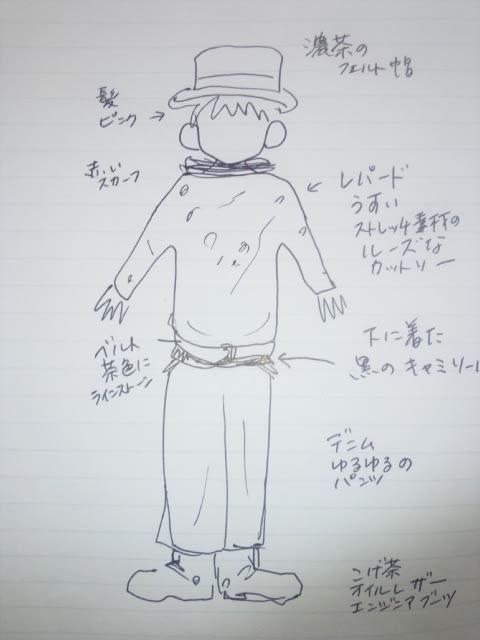 濃茶の
フェルト帽
髪
ピンク
赤い
スカーフ
レパード
うすい
ストレッチ素材の
ルーズな
カットソー
ベルト
茶色に
ラインストーン
下に着た
黒のキャミソール
デニム
ゆるゆるの
パンツ
こげ茶
オイルレザー
エンジニアブーツ